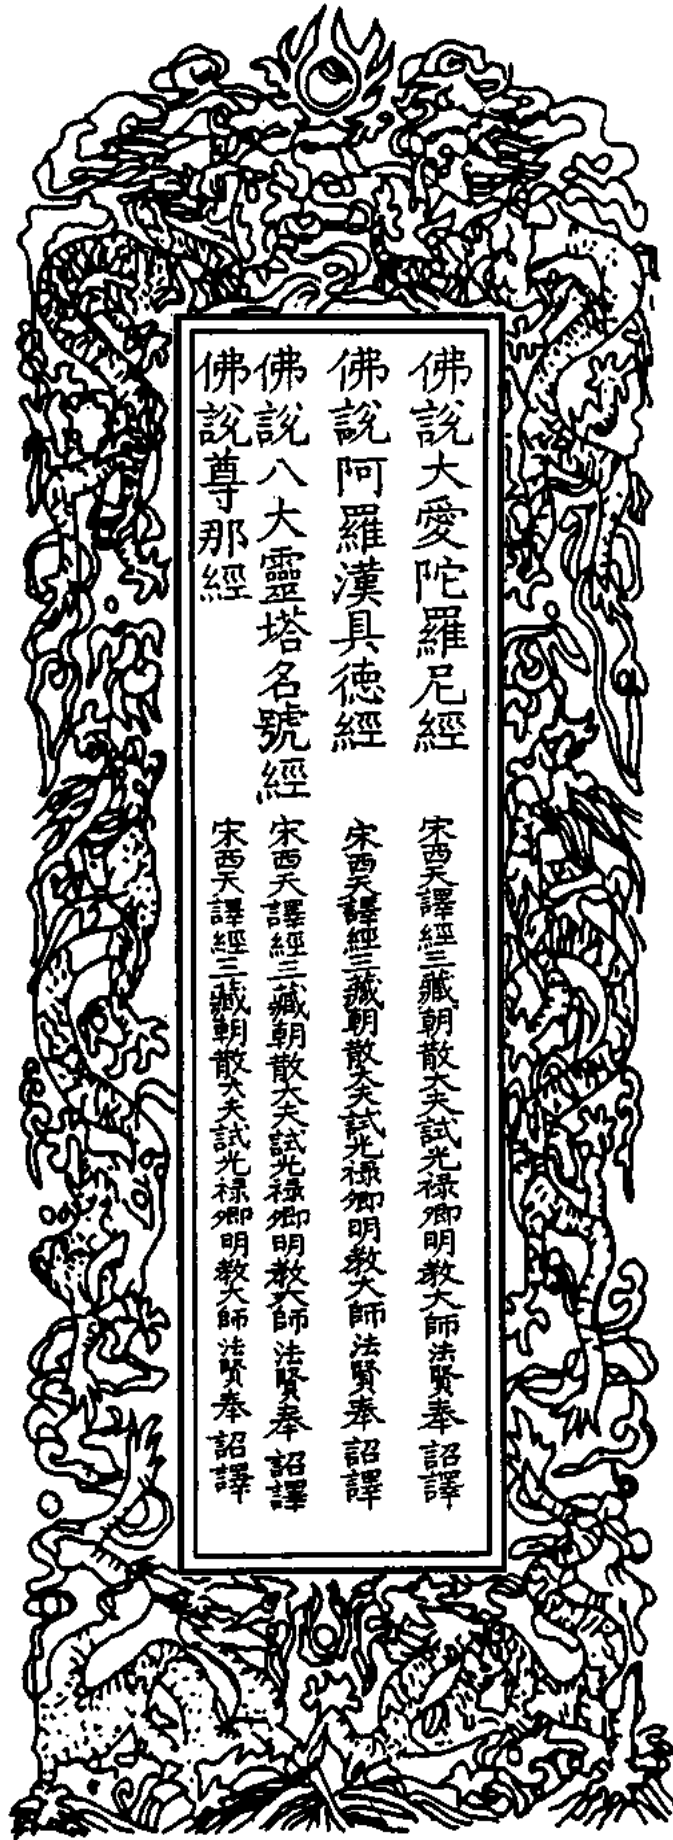 佛說大愛陀羅尼經 宋西天譯經三藏朝散大夫試光祿卿明教大師法賢奉 詔譯
佛說阿羅漢具德經 宋西天譯經三藏朝散大夫試光祿卿明教大師法賢奉 詔譯
佛說八大靈塔名號經 宋西天譯經三藏朝散大夫試光祿卿明教大師法賢奉 詔譯
佛說尊那經 宋西天譯經三藏朝散大夫試光祿卿明教大師法賢奉 詔譯